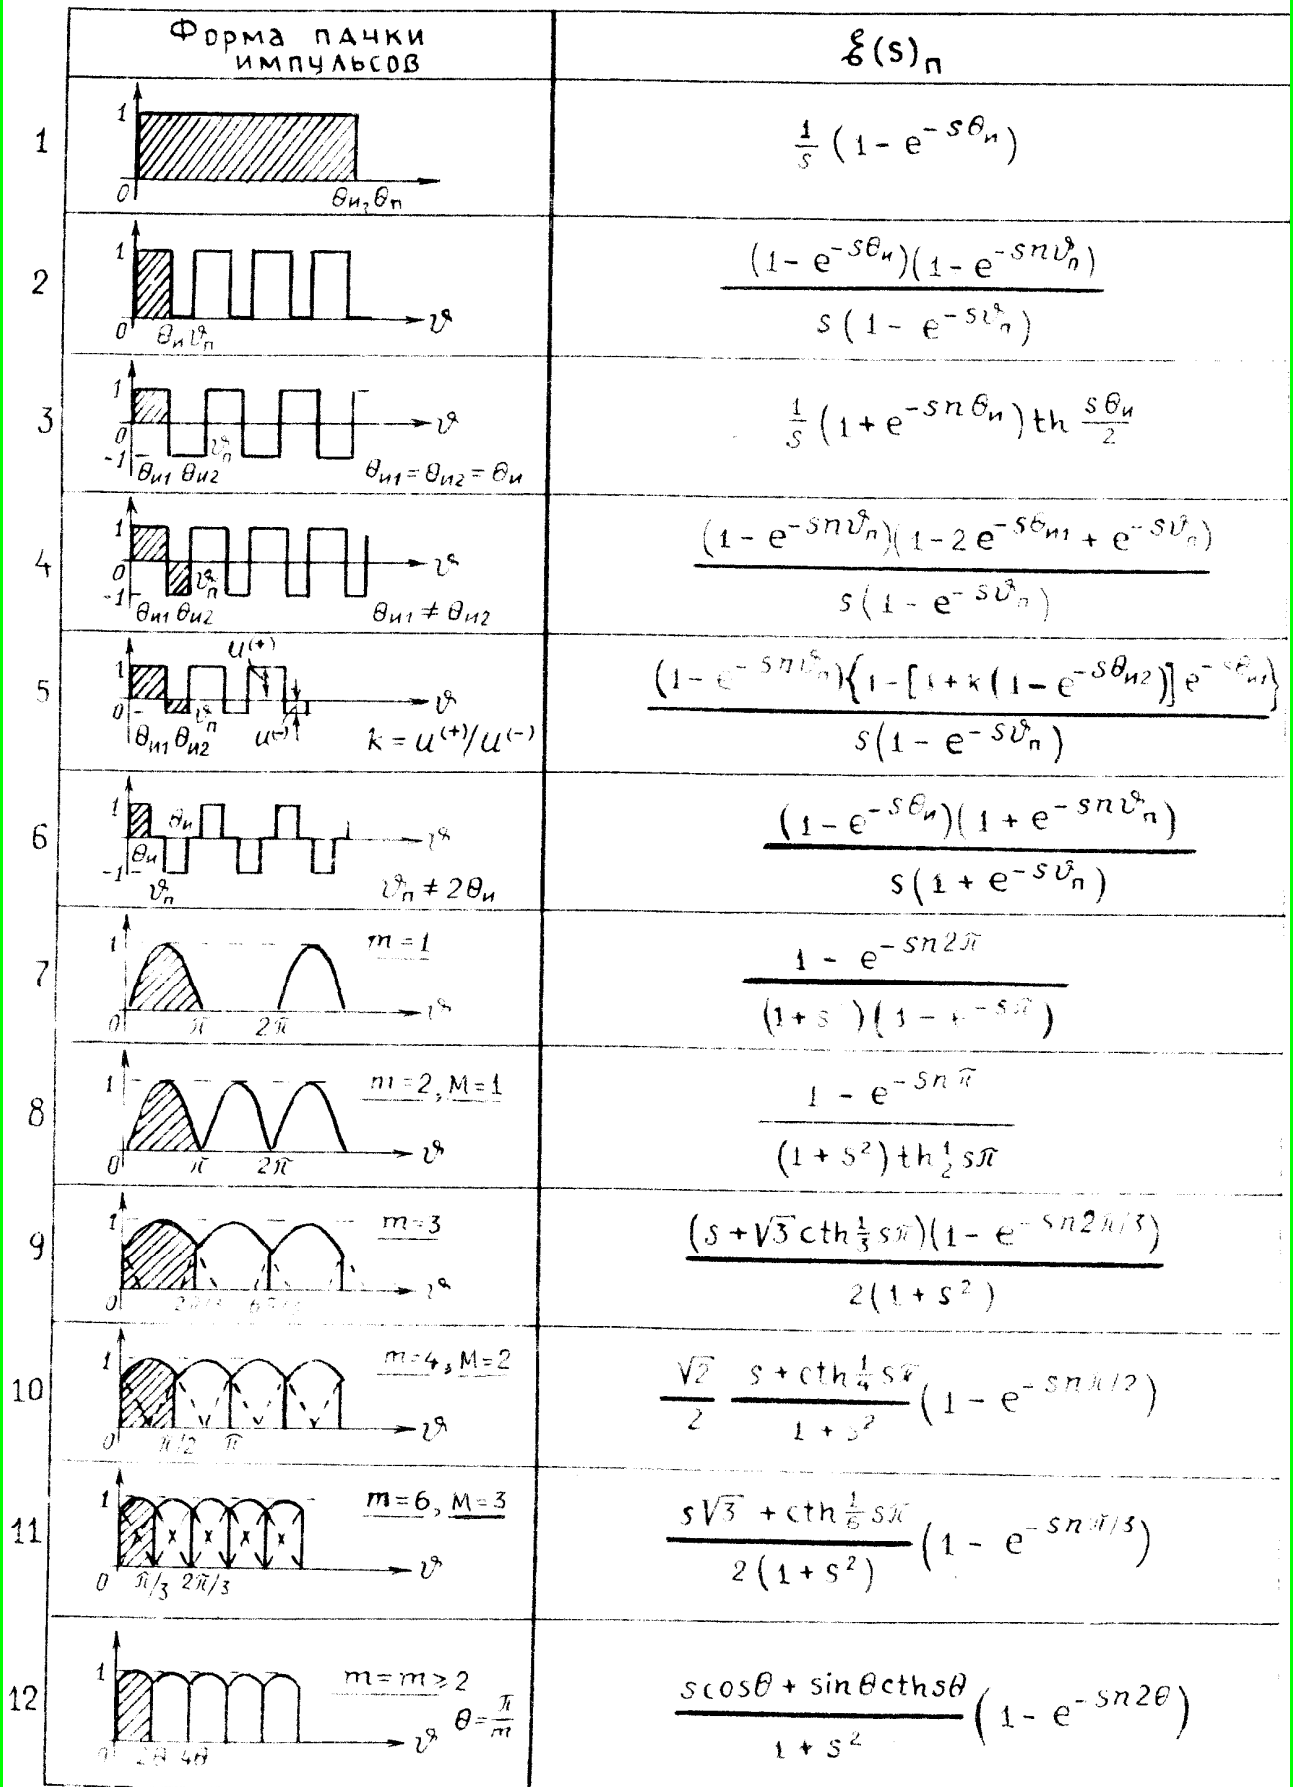 Форма пачки
импульсов
ℒ(s)п
1
1
0
θи, θп
1/s (1 - e^(-sθи))
2
1
0
θи ϑп
ϑ
(1 - e^(-sθи))(1 - e^(-snϑп))
s(1 - e^(-sϑп))
3
1
0
-1
θи1 θи2
ϑп
ϑ
θи1 = θи2 = θи
1/s (1 + e^(-snθи)) th sθи/2
4
1
0
-1
θи1 θи2
ϑп
ϑ
θи1 ≠ θи2
(1 - e^(-snϑп))(1 - 2e^(-sθи1) + e^(-sϑп))
s(1 - e^(-sϑп))
5
1
0
θи1 θи2
ϑп
u(+)
u(-)
ϑ
k = u(+)/u(-)
(1 - e^(-snϑп)){1 - [1 + k(1 - e^(-sθи2))] e^(-sθи1)}
s(1 - e^(-sϑп))
6
1
-1
θи
θи
ϑп
ϑ
ϑп ≠ 2θи
(1 - e^(-sθи))(1 + e^(-snϑп))
s(1 + e^(-sϑп))
7
1
0
π 2π
ϑ
m = 1
1 - e^(-sn2π)
(1 + s )(1 - e^(-sπ))
8
1
0
π 2π
ϑ
m = 2, M = 1
1 - e^(-snπ)
(1 + s²) th ½ sπ
9
1
0
ϑ
m = 3
(s + √3 cth ⅓ sπ)(1 - e^(-sn2π/3))
2(1 + s²)
10
1
0
π/2 π
ϑ
m = 4, M = 2
√2/2 (s + cth ¼ sπ)/(1 + s²) (1 - e^(-snπ/2))
11
1
0
x x x x x
π/3 2π/3
ϑ
m = 6, M = 3
(s√3 + cth ⅙ sπ)/(2(1 + s²)) (1 - e^(-snπ/3))
12
1
0
2θ 4θ
ϑ
m = m ≥ 2
θ = π/m
(s cosθ + sinθ cth sθ)/(1 + s²) (1 - e^(-sn2θ))